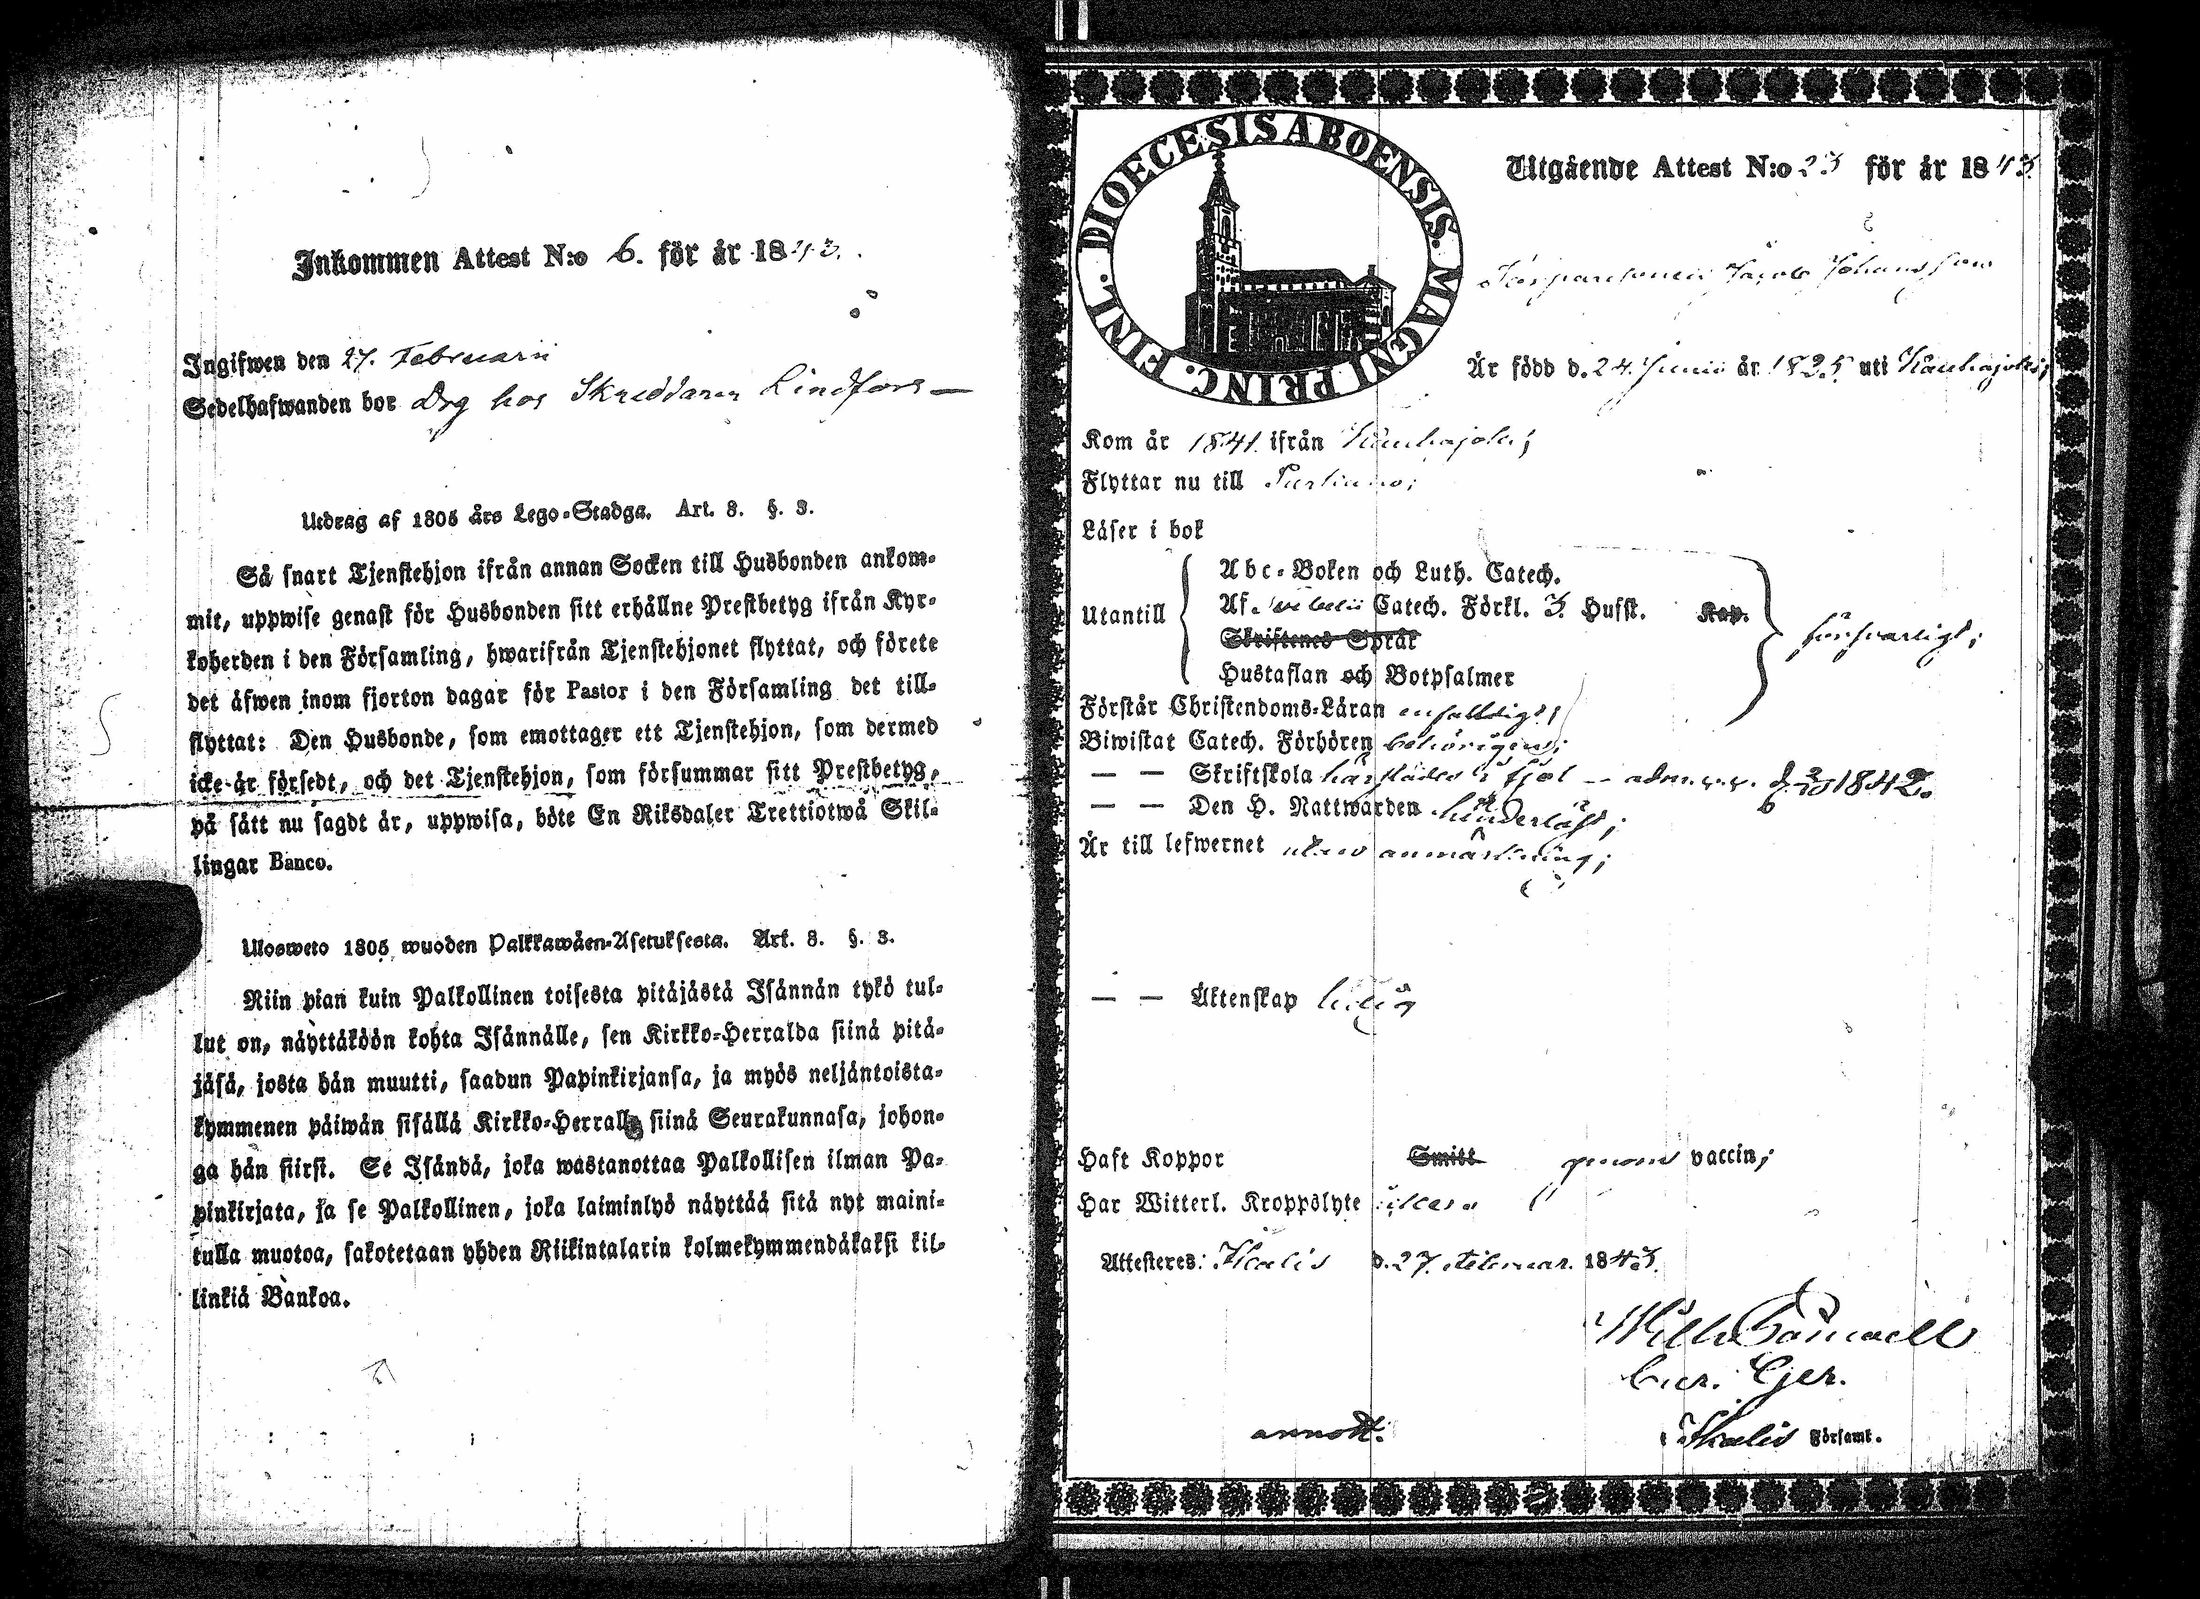 Inkommen Attest N:o 6. för år 1843.
Ingifwen den 27. Februarii
Sedelhafwanden bor Drg hos Skreddaren Lindfors —
Utdrag af 1805 års Lego-Stadga. Art. 8. §. 3.
Så snart Tjenstehjon ifrån annan Socken till Husbonden ankom-
mit, uppwise genast för Husbonden sitt erhållne Prestbetyg ifrån Kyr-
koherden i den Församling, hwarifrån Tjenstehjonet flyttat, och förete
det äfwen inom fjorton dagar för Pastor i den Församling det till-
flyttat: Den Husbonde, som emottager ett Tjenstehjon, som dermed
icke är försedt, och det Tjenstehjon, som försummar sitt Prestbetyg,
på sätt nu sagdt är, uppwisa, böte En Riksdaler Trettiotwå Skil-
lingar Banco.
Ulosweto 1805 wuoden Palkkawäen-Asetuksesta. Art. 8. §. 3.
Niin pian kuin Palkollinen toisesta pitäjästä Isännän tykö tul-
lut on, näyttäköön kohta Isännälle, sen Kirkko-Herralda siinä pitä-
jäsä, josta hän muutti, saadun Papinkirjansa, ja myös neljäntoista-
kymmenen päiwän sisällä Kirkko-Herralle siinä Seurakunnasa, johon-
ga hän siirsi. Se Isändä, joka wastanottaa Palkollisen ilman Pa-
pinkirjata, ja se Palkollinen, joka laiminlyö näyttää sitä nyt maini-
tulla muotoa, sakotetaan yhden Riikintalarin kolmekymmendäkaksi kil-
linkiä Bankoa.
DIOECESIS ABOENSIS. MAGNI PRINC. FINL.
Utgående Attest N:o 23 för år 1843.
Jacob Johansson
Är född d. 24. Junii år 1825 uti Kauhajoki;
Kom år 1841. ifrån Kauhajoki;
Flyttar nu till
Läser i bok
Utantill
Abc-Boken och Luth. Catech.
Af Svebelii Catech. Förkl. 3 Hufst. Kap.
Skriftenes Språk
Hustaflan och Botpsalmer
försvarligt;
Förstår Christendoms-Läran enfaldigt;
Biwistat Catech. Förhören behörigen;
— — Skriftskola härstädes i fjol — adm. 1842.
— — Den H. Nattwarden
Är till lefwernet utan anmärkning;
— — Äktenskap ledig
Haft Koppor Smitt genom vaccin;
Har Witterl. Kroppslyte
Attesteres: Ikalis d. 27. Februar. 1843.
Ikalis Församl.
annott.